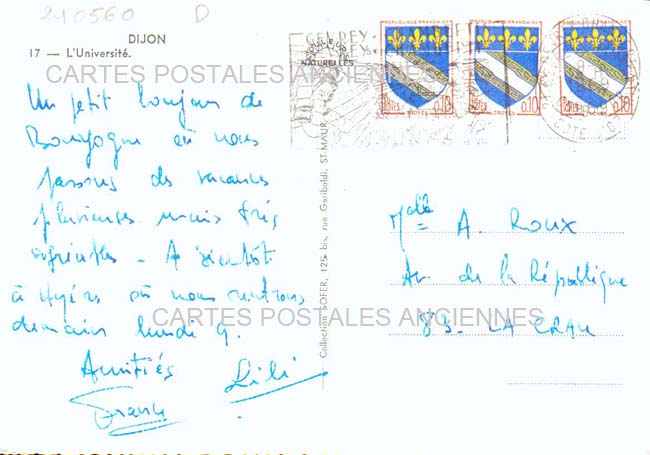 240560 D
DIJON
17 — L'Université.
COULEURS
NATURELLES
GEVREY
REPUBLIQUE FRANÇAISE REPUBLIQUE FRANÇAISE REPUBLIQUE FRANÇAISE
POSTES 0,10 POSTES 0,10 POSTES 0,10
TROYES TROYES TROYES
COTE D'OR
CARTES POSTALES ANCIENNES
Un petit bonjour de
Bourgogne où nous
passons des vacances
pluvieuses mais très
agréables - A bientôt
à Hyères où nous rentrons
demain lundi 9.
Amitiés
Lili
France
Collection SOFER, 125 bis, rue Garibaldi, ST-MAUR
Melle A. Roux
Av. de la République
83. LA CRAU
CARTES POSTALES ANCIENNES